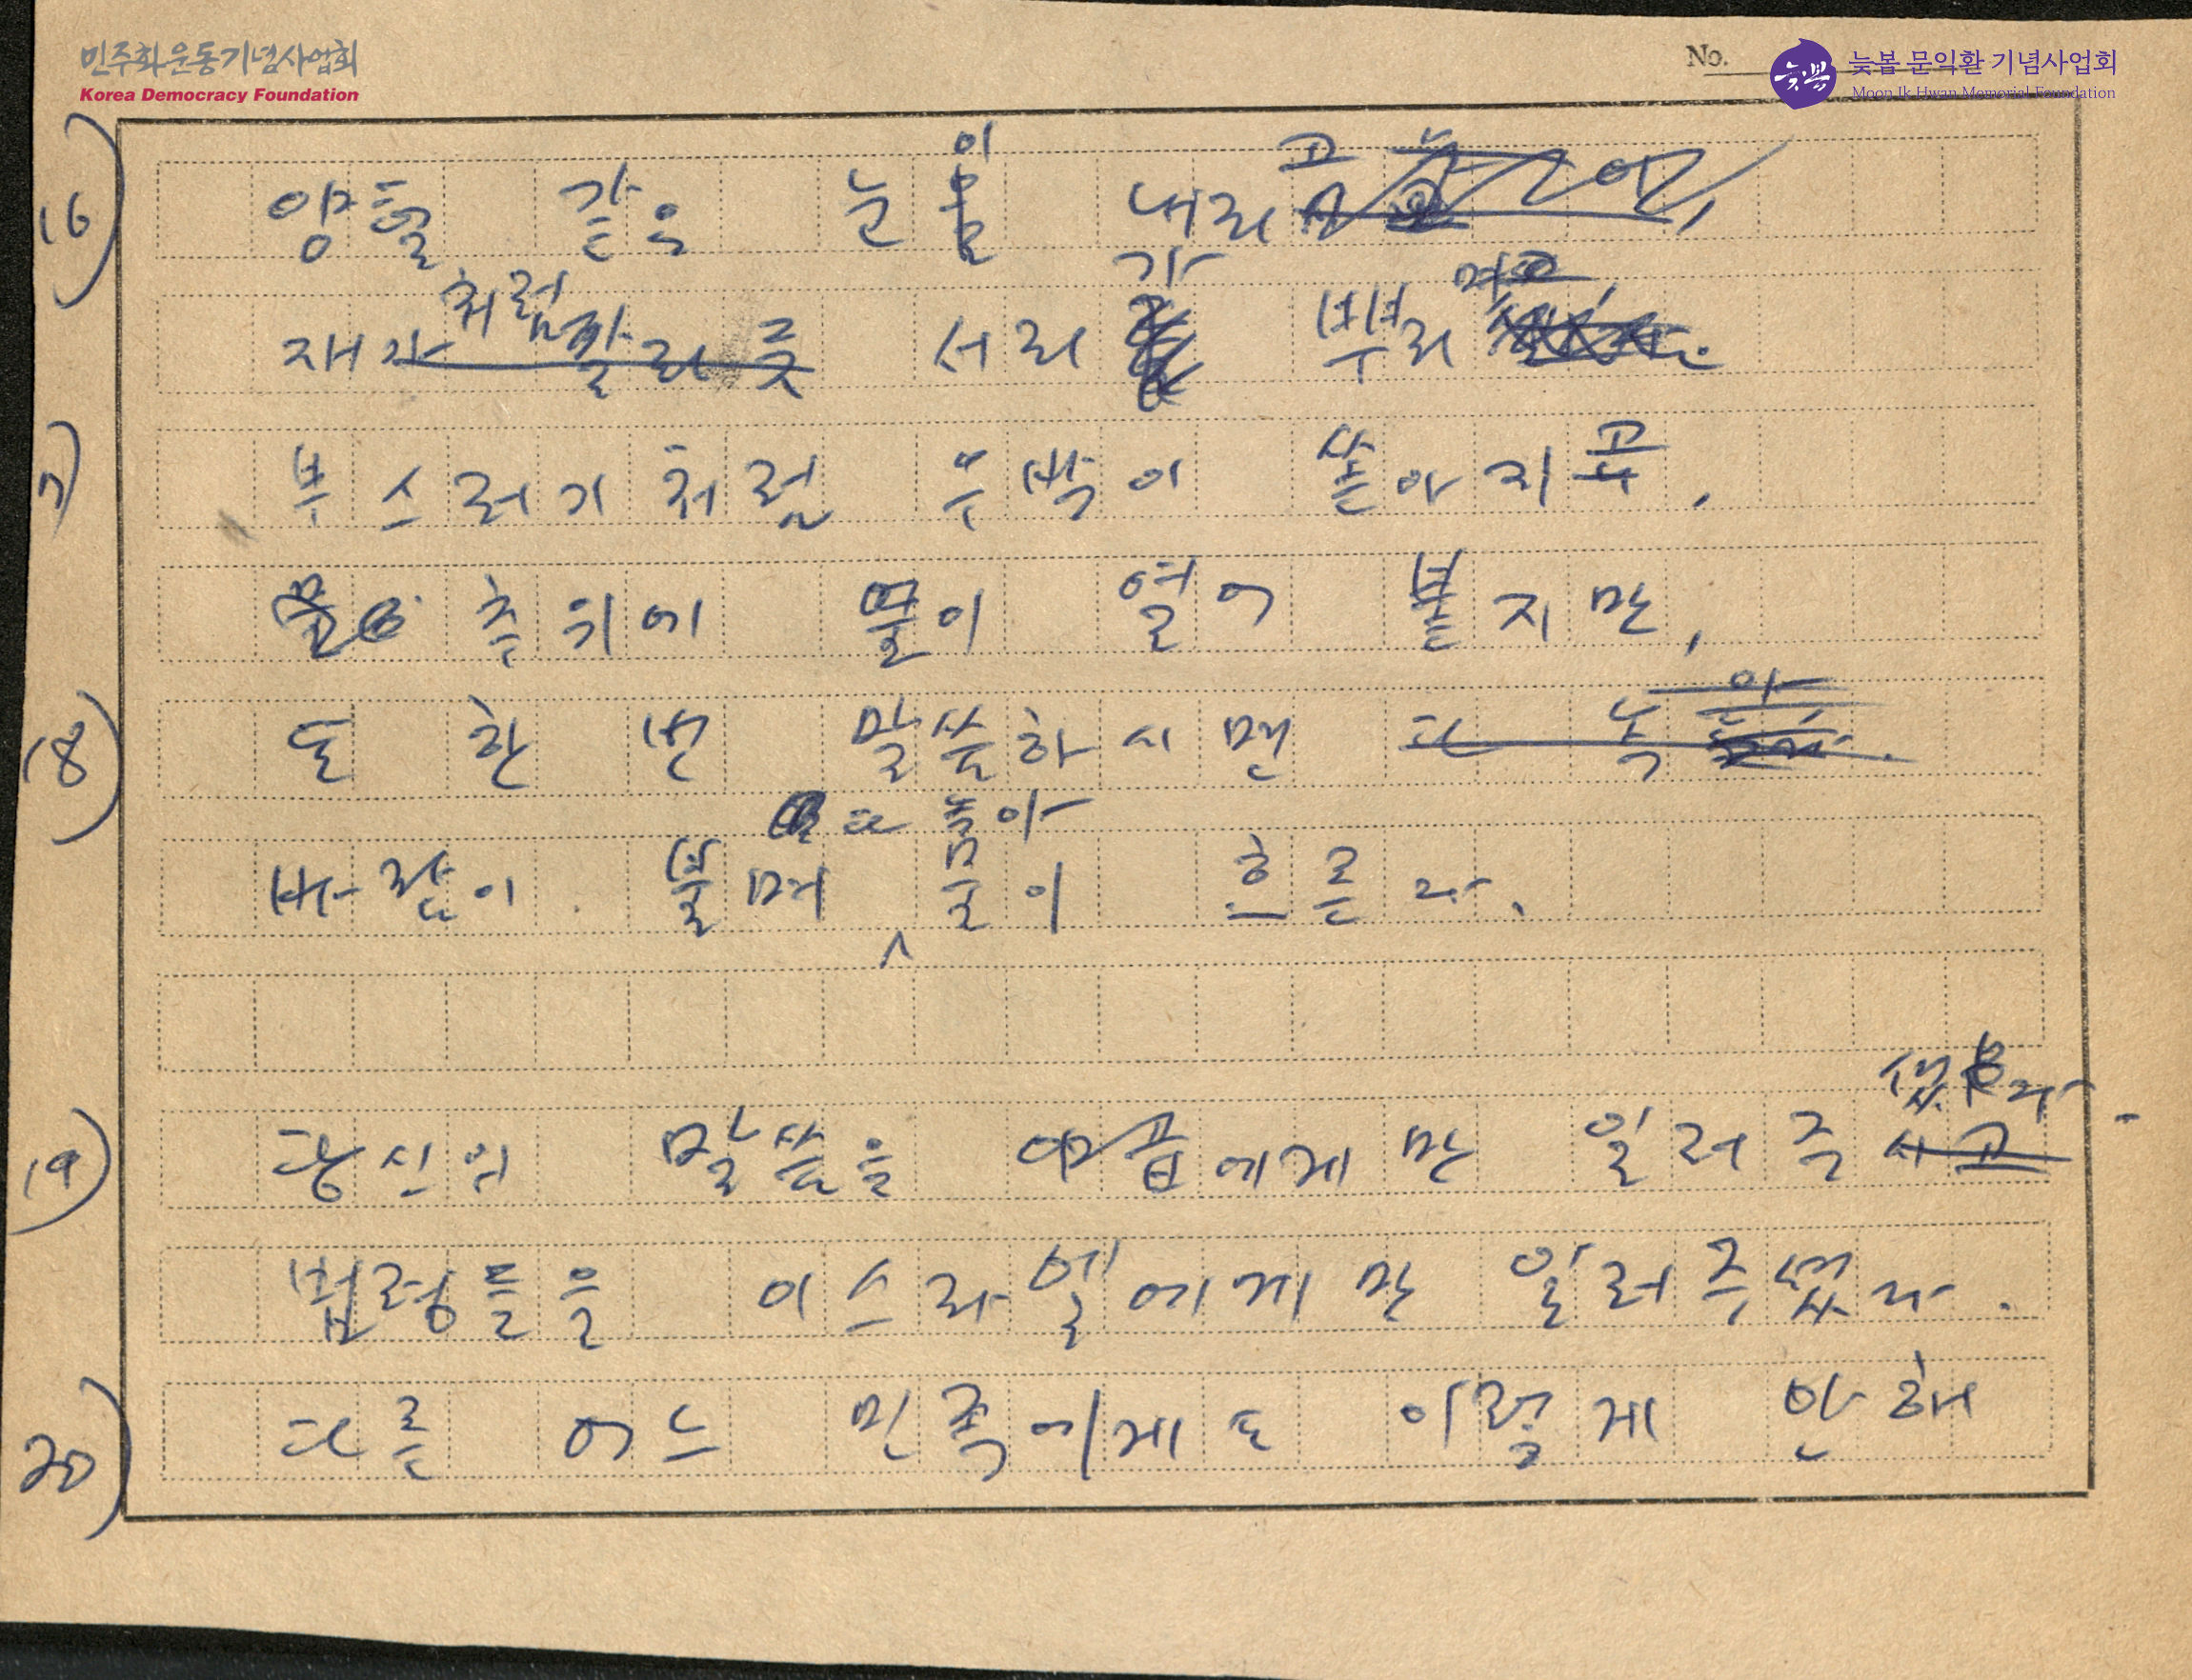 민주화운동기념사업회
Korea Democracy Foundation
No.
늦봄 문익환 기념사업회
Moon Ik Hwan Memorial Foundation
16) 양털 같은 눈이 내리고
재처럼 서리가 뿌려
17) 부스러기처럼 우박이 쏟아지고,
추위에 물이 얼어 붙지만,
18) 또 한번 말씀하시면
바람이 불며 다 녹아 물이 흐른다.
19) 당신의 말씀을 야곱에게만 일러주셨다.
법령들을 이스라엘에게만 일러주셨다.
20) 다른 어느 민족에게도 이렇게 안해